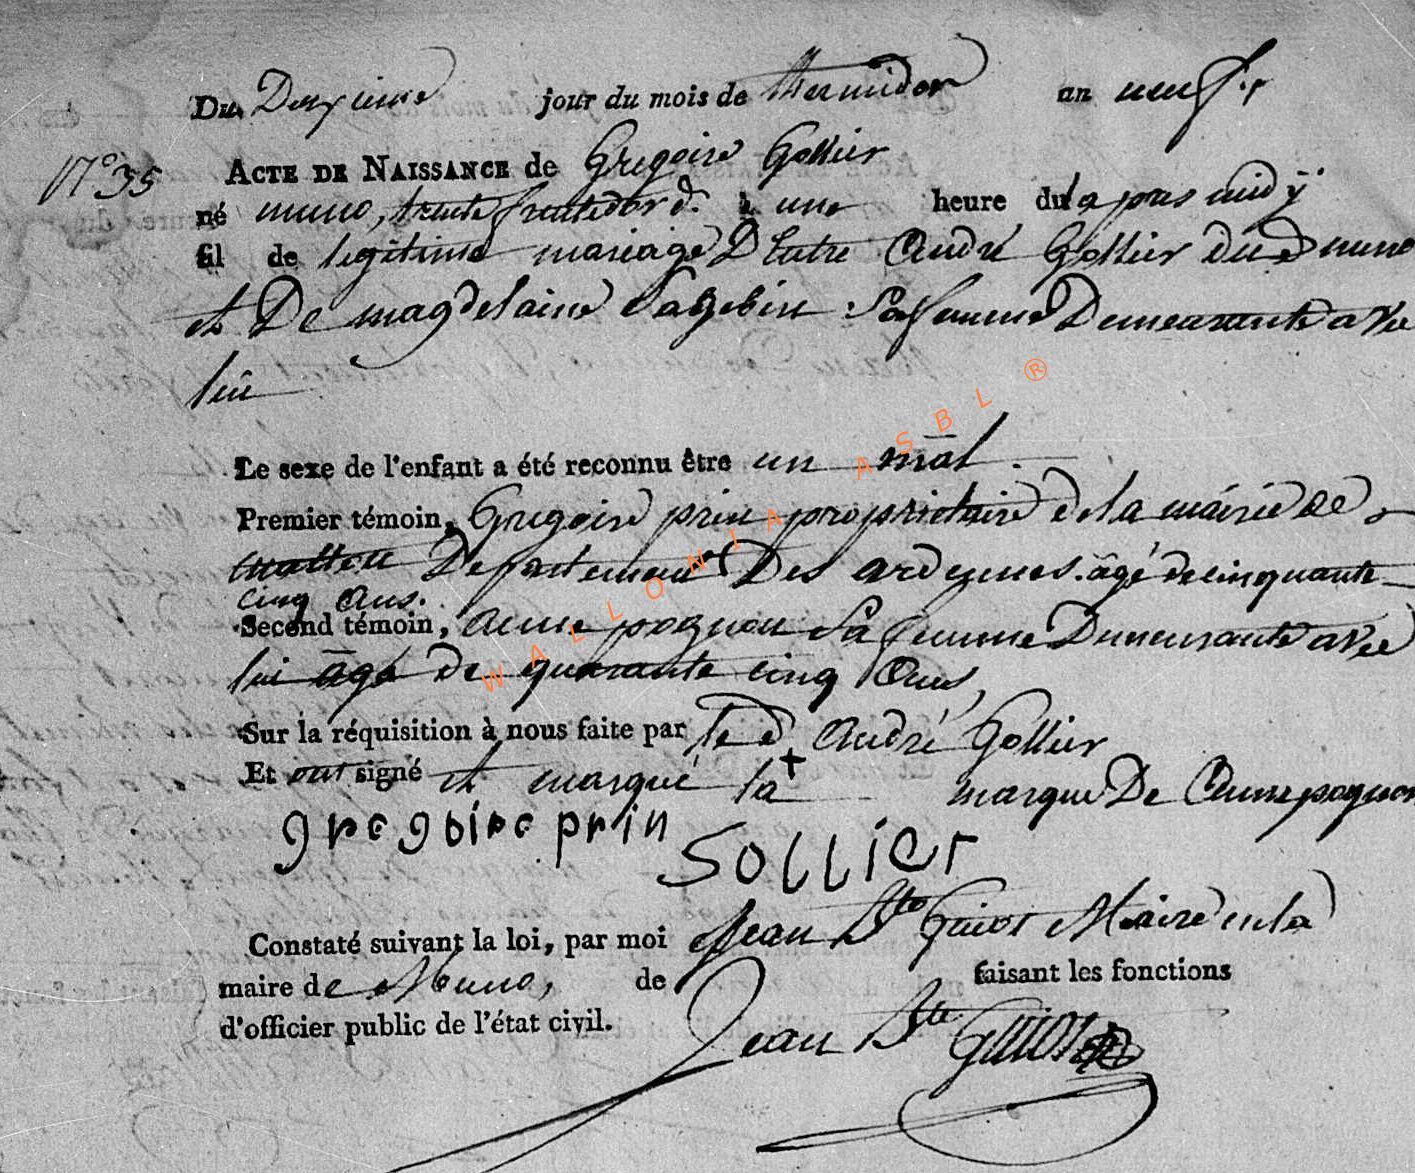 Du Deuxieme jour du mois de thermidor an neuf .
N° 35
ACTE DE NAISSANCE de Gregoire Gollier
né muno, trente d. à une heure du l'apres midÿ
fil de legitime mariage D'Entre André Gollier dud muno
et De magdelaine sa femme Demeurante avec
lui
Le sexe de l'enfant a été reconnu être un mâl .
Premier témoin, Gregoire prin proprietaire de la mairie de
matton Departement Des ardennes. âgé de cinquante
cinq ans.
Second témoin, anne pognon sa femme Demeurante avec
lui âgé de quarante cinq ans,
Sur la réquisition à nous faite par le d André Gollier
Et ont signé et marqué la + marque De anne pognon
gregoire prin
Sollier
Constaté suivant la loi, par moi Jean Bte Guiot Maire en la
maire de Muno, de faisant les fonctions
d'officier public de l'état civil.
Jean Bte Guiot
WALLONIA ASBL ®